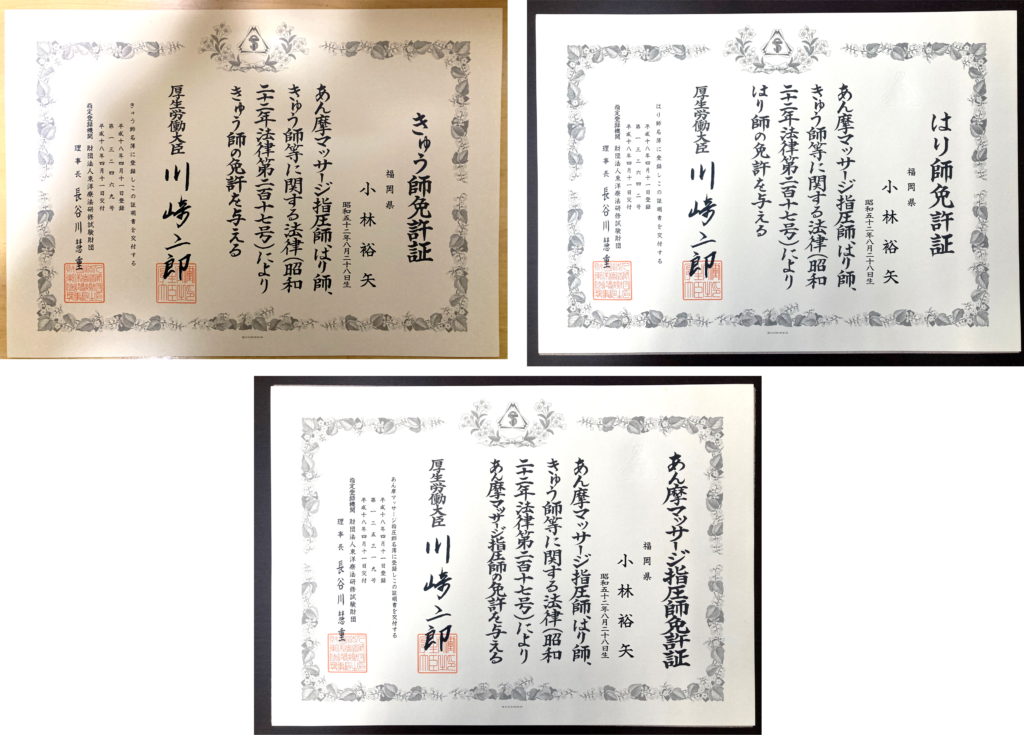 きゅう師免許証
福岡県
小林裕矢
昭和五十二年八月二十八日生
あん摩マッサージ指圧師、はり師、
きゅう師等に関する法律(昭和
二十二年法律第二百十七号)により
きゅう師の免許を与える
厚生労働大臣
川崎二郎
きゅう師名簿に登録しこの証明書を交付する
平成十八年四月十一日登録
第一三二四六九号
平成十八年四月十一日交付
指定登録機関 財団法人東洋療法研修試験財団
理事長 長谷川慧重
はり師免許証
福岡県
小林裕矢
昭和五十二年八月二十八日生
あん摩マッサージ指圧師、はり師、
きゅう師等に関する法律(昭和
二十二年法律第二百十七号)により
はり師の免許を与える
厚生労働大臣
川崎二郎
はり師名簿に登録しこの証明書を交付する
平成十八年四月十一日登録
第一三二六四二号
平成十八年四月十一日交付
指定登録機関 財団法人東洋療法研修試験財団
理事長 長谷川慧重
あん摩マッサージ指圧師免許証
福岡県
小林裕矢
昭和五十二年八月二十八日生
あん摩マッサージ指圧師、はり師、
きゅう師等に関する法律(昭和
二十二年法律第二百十七号)により
あん摩マッサージ指圧師の免許を与える
厚生労働大臣
川崎二郎
あん摩マッサージ指圧師名簿に登録しこの証明書を交付する
平成十八年四月十一日登録
第一二五三一九号
平成十八年四月十一日交付
指定登録機関 財団法人東洋療法研修試験財団
理事長 長谷川慧重